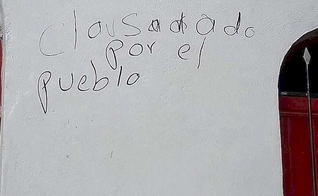 Clausudado
por el
pueblo